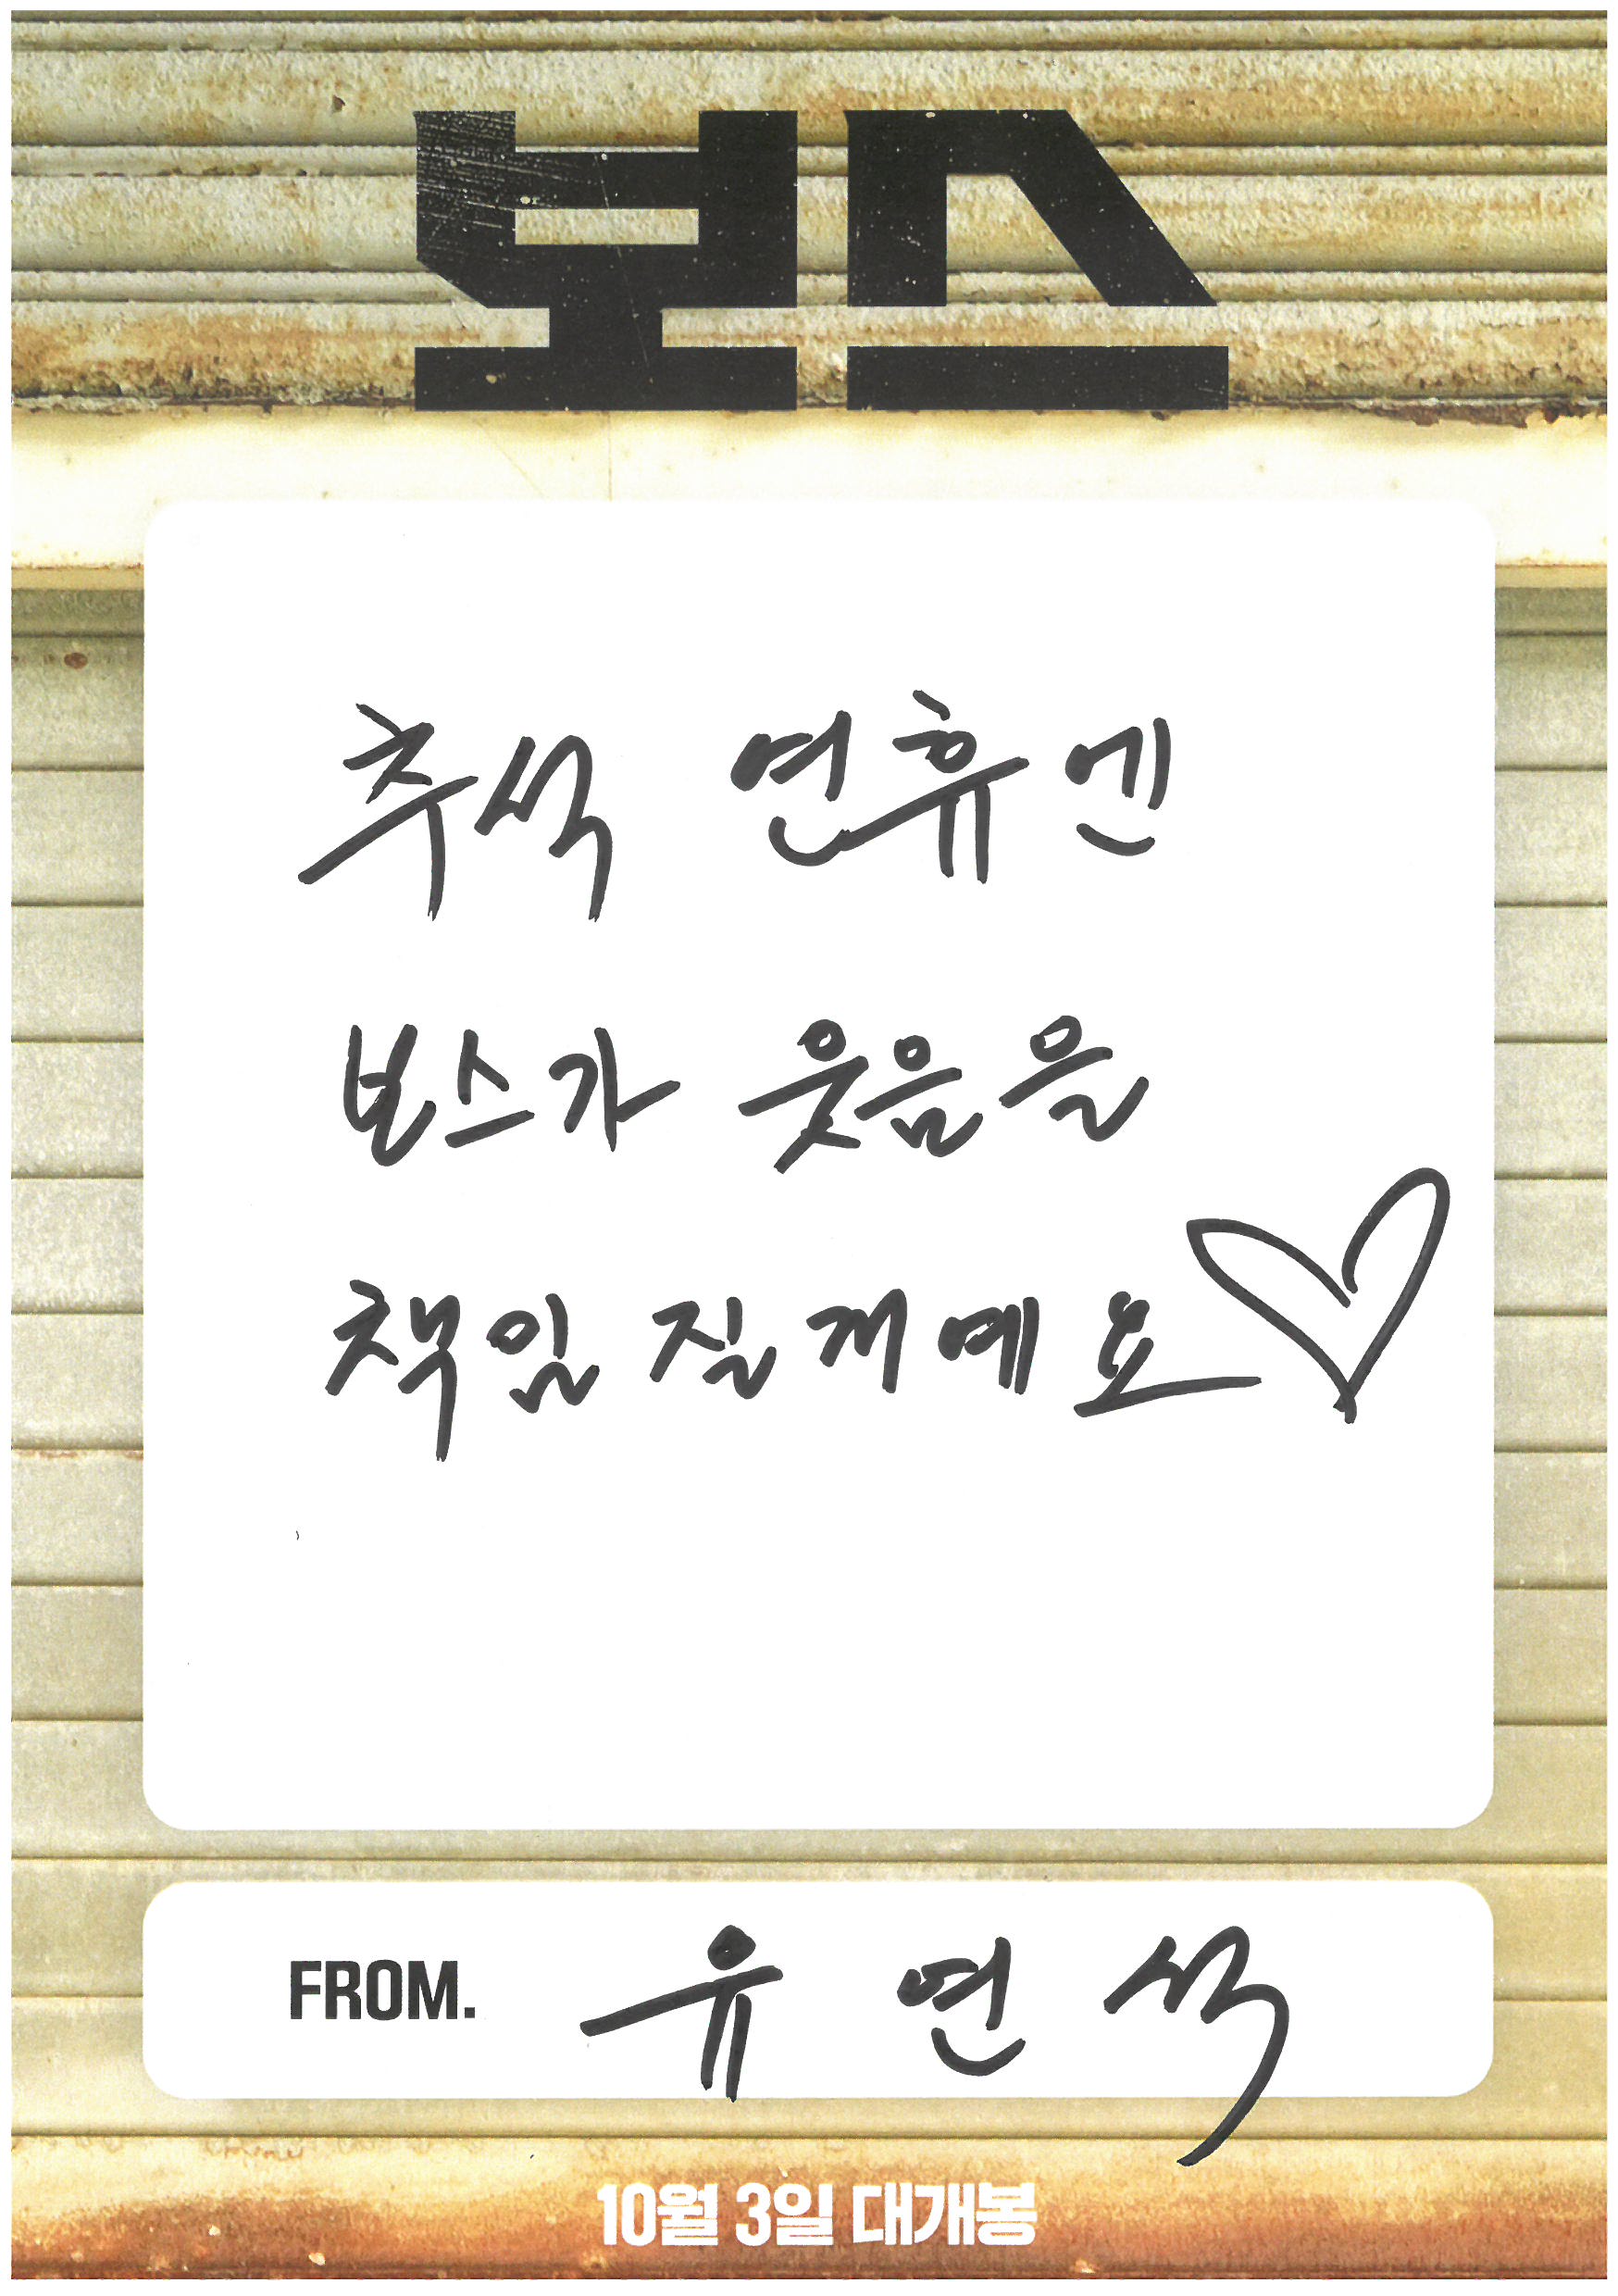 보스
추석 연휴엔
보스가 웃음을
책임 질꺼예요♡
FROM. 유연석
10월 3일 대개봉